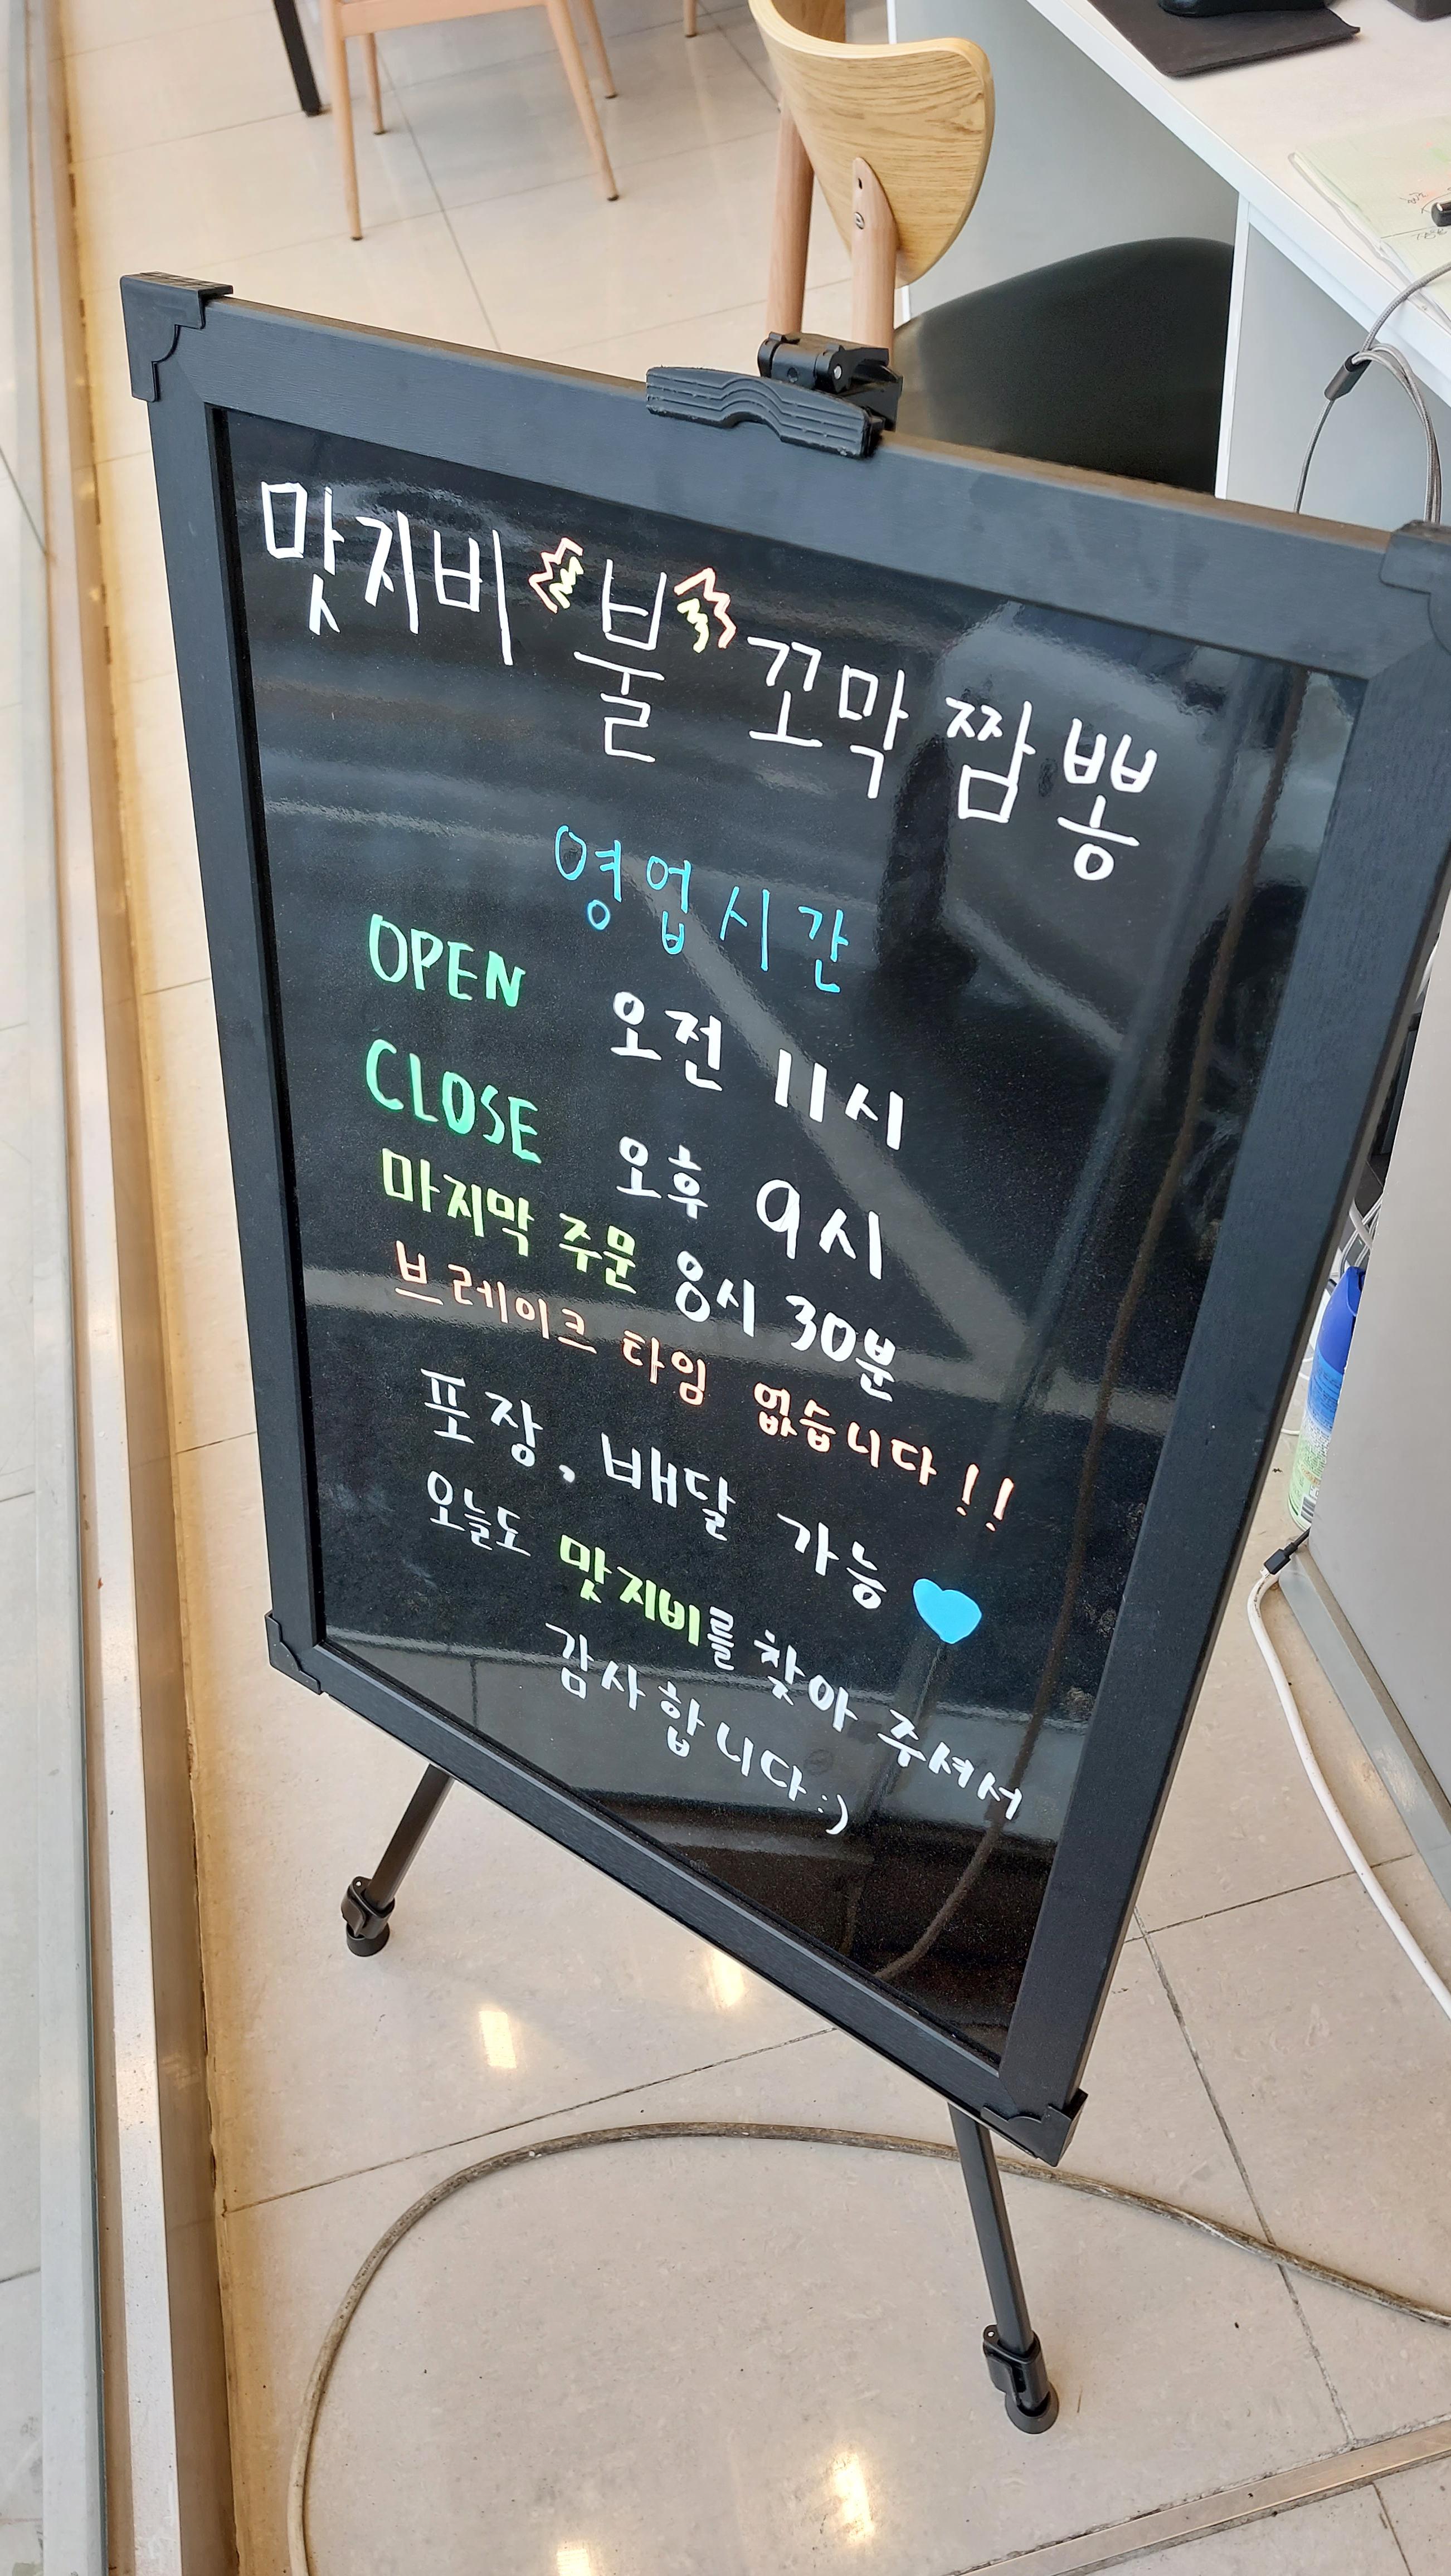 맛지비 불 꼬막 짬뽕
영업시간
OPEN 오전 11시
CLOSE 오후 9시
마지막 주문 8시 30분
브레이크 타임 없습니다!!
포장, 배달 가능
오늘도 맛지비를 찾아 주셔서
감사합니다:)